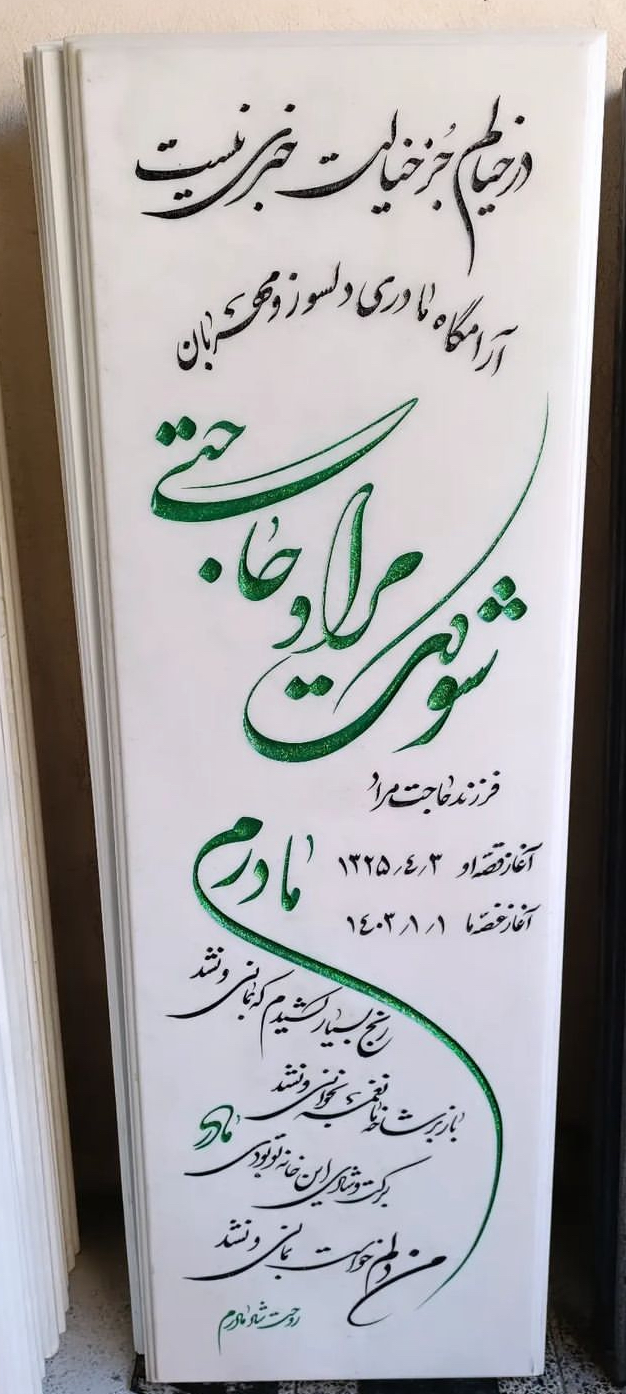 در خیالم جُز خیالت خبری نیست
آرامگاه مادری دلسوز و مهربان
شوکت مراد حاجتی
فرزند حاجت مراد
آغاز قصّه او ۱۳۲۵/۴/۳
آغاز غصّه ما ۱۴۰۳/۱/۱
مادرم
رنج بسیار کشیدم که بمانی و نشد
باز بر شاخه ما نغمه بخوانی و نشد
مادر
برکت و شادی این خانه تو بودی
من دلم خواست بمانی و نشد
روحت شاد مادرم